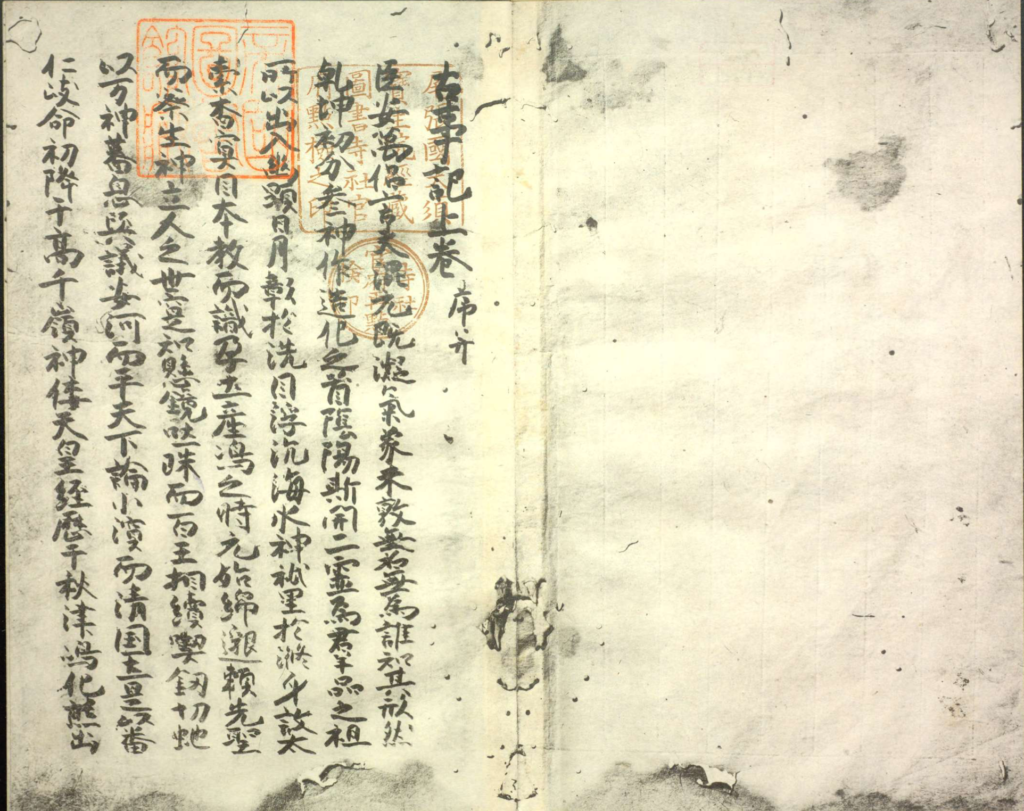 古事記上卷 序并
臣安萬侶言夫混元既凝氣象未敦無名無爲誰知其形然
乾坤初分參神作造化之首陰陽斯開二靈爲群品之祖
所以出入幽顯日月彰於洗目浮沉海水神祇呈於滌身故太
素杳冥因本教而識孕土産嶋之時元始綿邈頼先聖
而察生神立人之世寔知懸鏡吐珠而百王相續喫釼切虵
以万神蕃息与議安河而平天下論小濱而清国土是以番
仁岐命初降于高千嶺神倭天皇経歴于秋津嶋化熊出